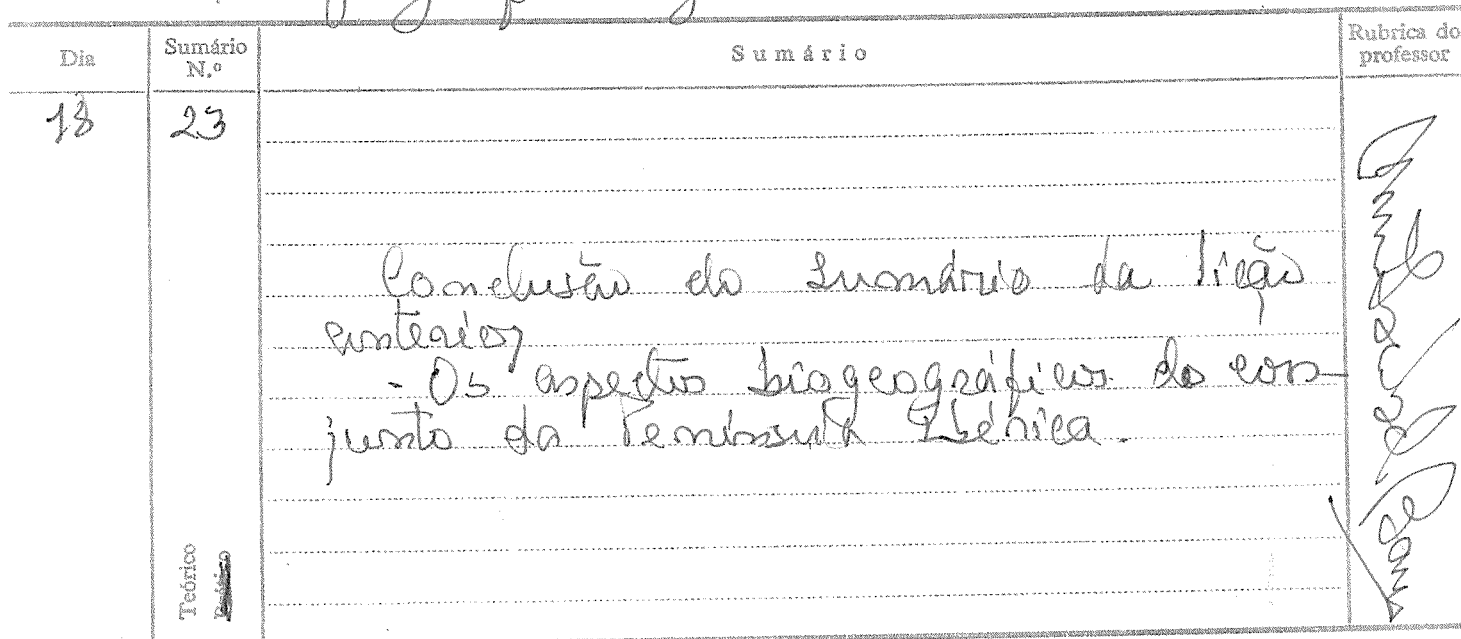 Dia Sumário N.º Sumário Rubrica do professor
18 23
Conclusão do Sumário da lição
anterior
- Os aspectos biogeográficos do con-
junto da Península Ibérica.
Teórico